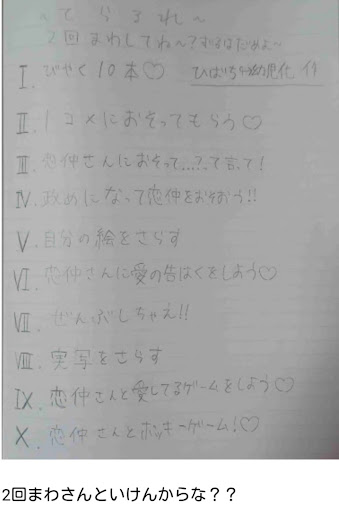 ~でられれ~
2回まわしてね~?ずるはだめよ~
I. びやく10本♡ ひばいちゃ幼児化 イ
II. 1コメにおそってもらう♡
III. 恋仲さんにおそって....?って言って!
IV. 攻めになって恋仲をおそおう!!
V. 自分の絵をさらす
VI. 恋仲さんに愛の告はくをしよう♡
VII. ぜんぶしちゃえ!!
VIII. 実写をさらす
IX. 恋仲さんと愛してるゲームをしよう♡
X. 恋仲さんとポッキーゲーム!♡
2回まわさんといけんからな??